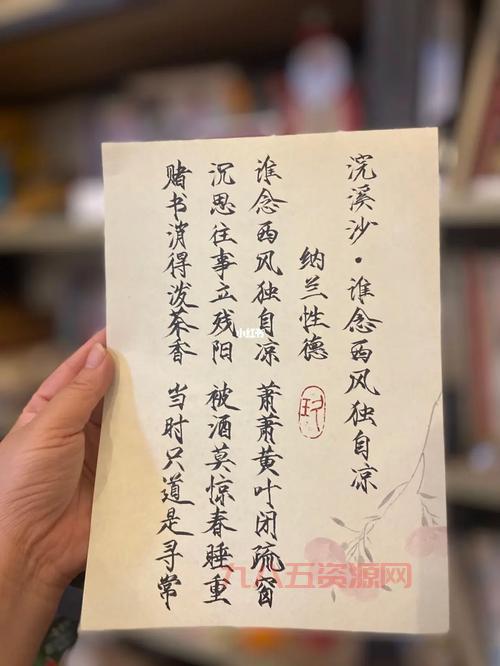 浣溪沙·谁念西风独自凉
纳兰性德
谁念西风独自凉 萧萧黄叶闭疏窗
沉思往事立残阳 被酒莫惊春睡重
赌书消得泼茶香 当时只道是寻常
小红书
九八五资源网